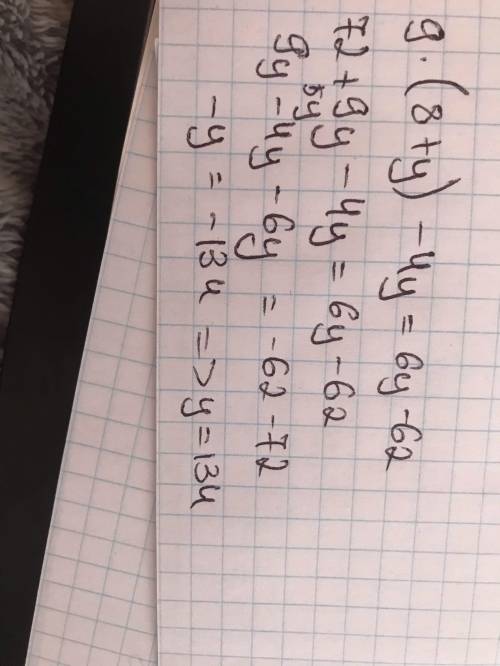 9 · (8 + y) - 4y = 6y - 62
72 + 9y - 4y = 6y - 62
5y
9y - 4y - 6y = -62 - 72
-y = -134 => y = 134